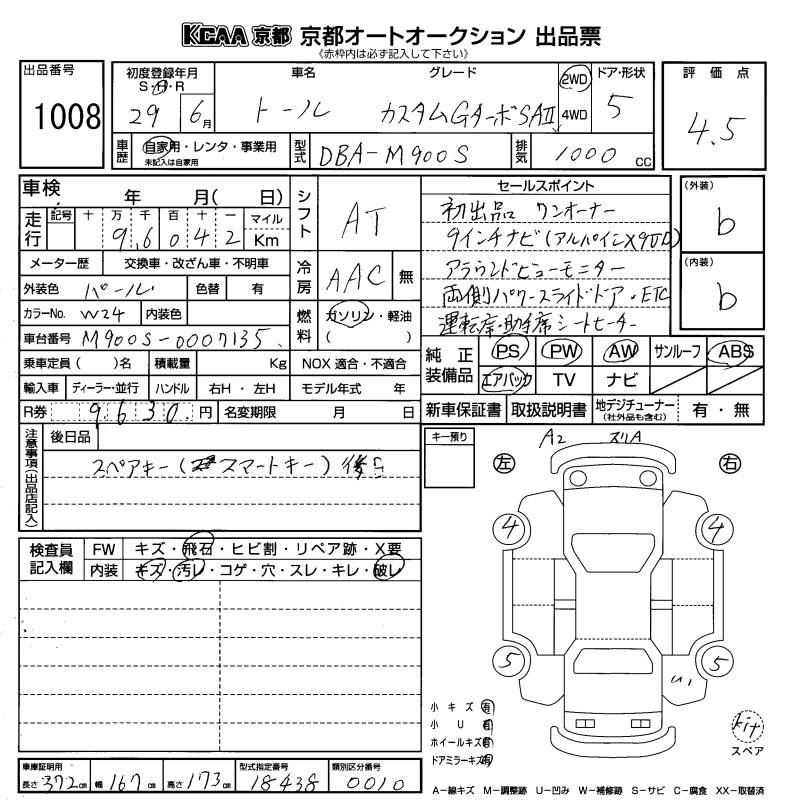 KCAA 京都 京都オートオークション 出品票
《赤枠内は必ず記入して下さい》
出品番号 1008
初度登録年月 S・H・R 29 6月
車名 トール
グレード カスタムGターボSAⅡ
2WD 4WD
ドア・形状 5
評価点 4.5
車歴 自家用・レンタ・事業用 未記入は自家用
型式 DBA-M900S
排気 1000 CC
車検 年 月( 日)
走行 記号 十 万 千 百 十 一 マイル Km
9,6042
メーター歴 交換車・改ざん車・不明車
外装色 パール 色替 有
カラーNo. W24 内装色
車台番号 M900S-0007135
乗車定員( )名 積載量 Kg NOX 適合・不適合
輸入車 ディーラー・並行 ハンドル 右H・左H モデル年式 年
R券 9630円 名変期限 月 日
シフト AT
冷房 AAC 無
燃料 ガソリン・軽油 ( )
セールスポイント
初出品 ワンオーナー
9インチナビ(アルパインX9000)
アラウンドビューモニター
両側パワースライドドア・ETC
運転席・助手席シートヒーター
(外装) b
(内装) b
純正装備品 PS PW AW サンルーフ ABS
エアバック TV ナビ
新車保証書 取扱説明書 地デジチューナー (社外品も含む) 有・無
注意事項(出品店記入)
後日品
スペアキー(スマートキー)後日
キー預り
検査員記入欄
FW キズ・飛石・ヒビ割・リペア跡・X要
内装 キズ・汚レ・コゲ・穴・スレ・キレ・破レ
A2 スリA
左 右
4 4
5 5
U1
小キズ 有
小U 有
ホイールキズ 有
ドアミラーキズ 有
kit
スペア
車庫証明用 長さ 372cm 幅 167cm 高さ 173cm
型式指定番号 18438
類別区分番号 0010
A-線キズ M-調整跡 U-凹み W-補修跡 S-サビ C-腐食 XX-取替済